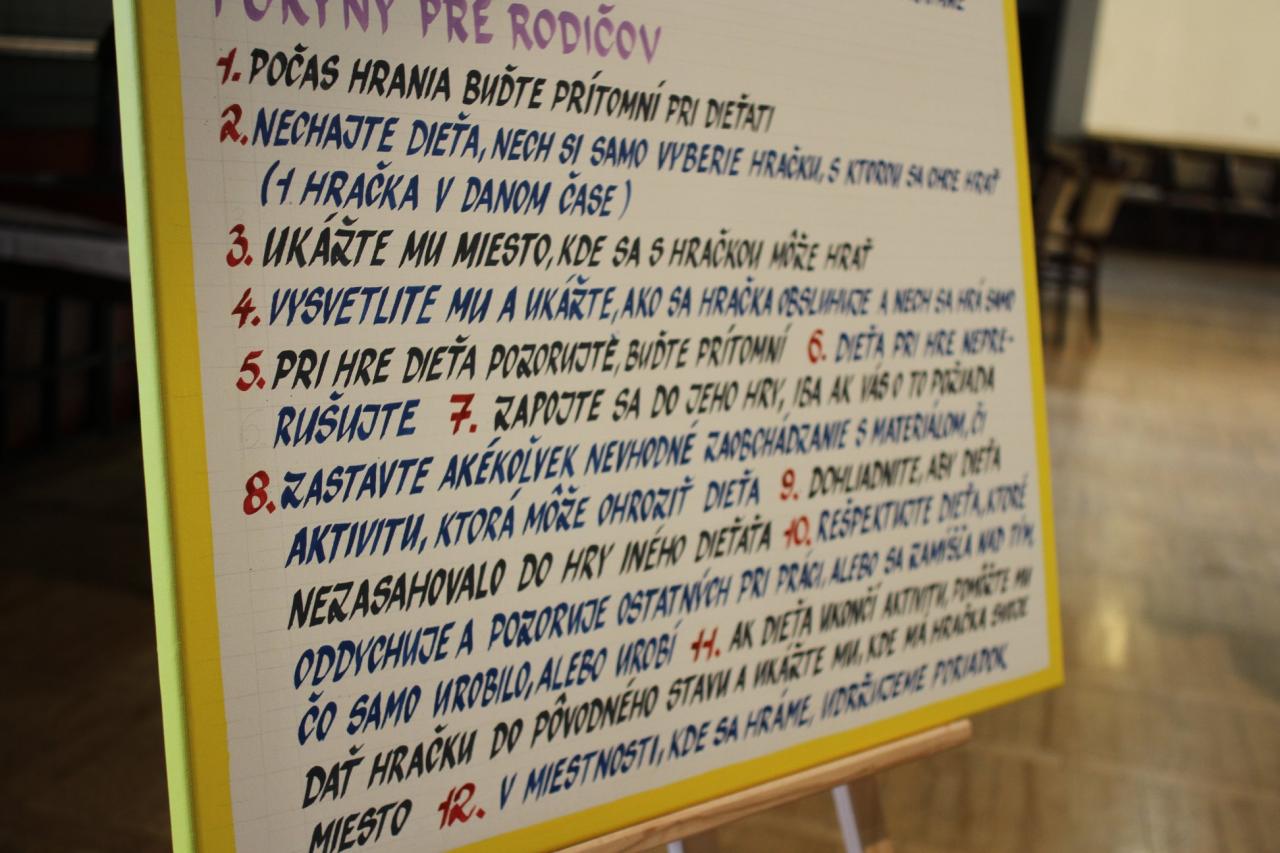 POKYNY PRE RODIČOV
1. POČAS HRANIA BUĎTE PRÍTOMNÍ PRI DIEŤATI
2. NECHAJTE DIEŤA, NECH SI SAMO VYBERIE HRAČKU, S KTOROU SA CHCE HRAŤ
(1 HRAČKA V DANOM ČASE)
3. UKÁŽTE MU MIESTO, KDE SA S HRAČKOU MÔŽE HRAŤ
4. VYSVETLITE MU A UKÁŽTE, AKO SA HRAČKA OBSLUHUJE A NECH SA HRÁ SAMO
5. PRI HRE DIEŤA POZORUJTE, BUĎTE PRÍTOMNÍ 6. DIEŤA PRI HRE NEPRE-
RUŠUJTE 7. ZAPOJTE SA DO JEHO HRY, IBA AK VÁS O TO POŽIADA
8. ZASTAVTE AKÉKOĽVEK NEVHODNÉ ZAOBCHÁDZANIE S MATERIÁLOM, ČI
AKTIVITU, KTORÁ MÔŽE OHROZIŤ DIEŤA 9. DOHLIADNITE, ABY DIEŤA
NEZASAHOVALO DO HRY INÉHO DIEŤAŤA 10. REŠPEKTUJTE DIEŤA, KTORÉ
ODDYCHUJE A POZORUJE OSTATNÝCH PRI PRÁCI, ALEBO SA ZAMÝŠĽA NAD TÝM,
ČO SAMO UROBILO, ALEBO UROBÍ 11. AK DIEŤA UKONČÍ AKTIVITU, POMÔŽTE MU
DAŤ HRAČKU DO PÔVODNÉHO STAVU A UKÁŽTE MU, KDE MÁ HRAČKA SVOJE
MIESTO 12. V MIESTNOSTI, KDE SA HRÁME, UDRŽUJEME PORIADOK